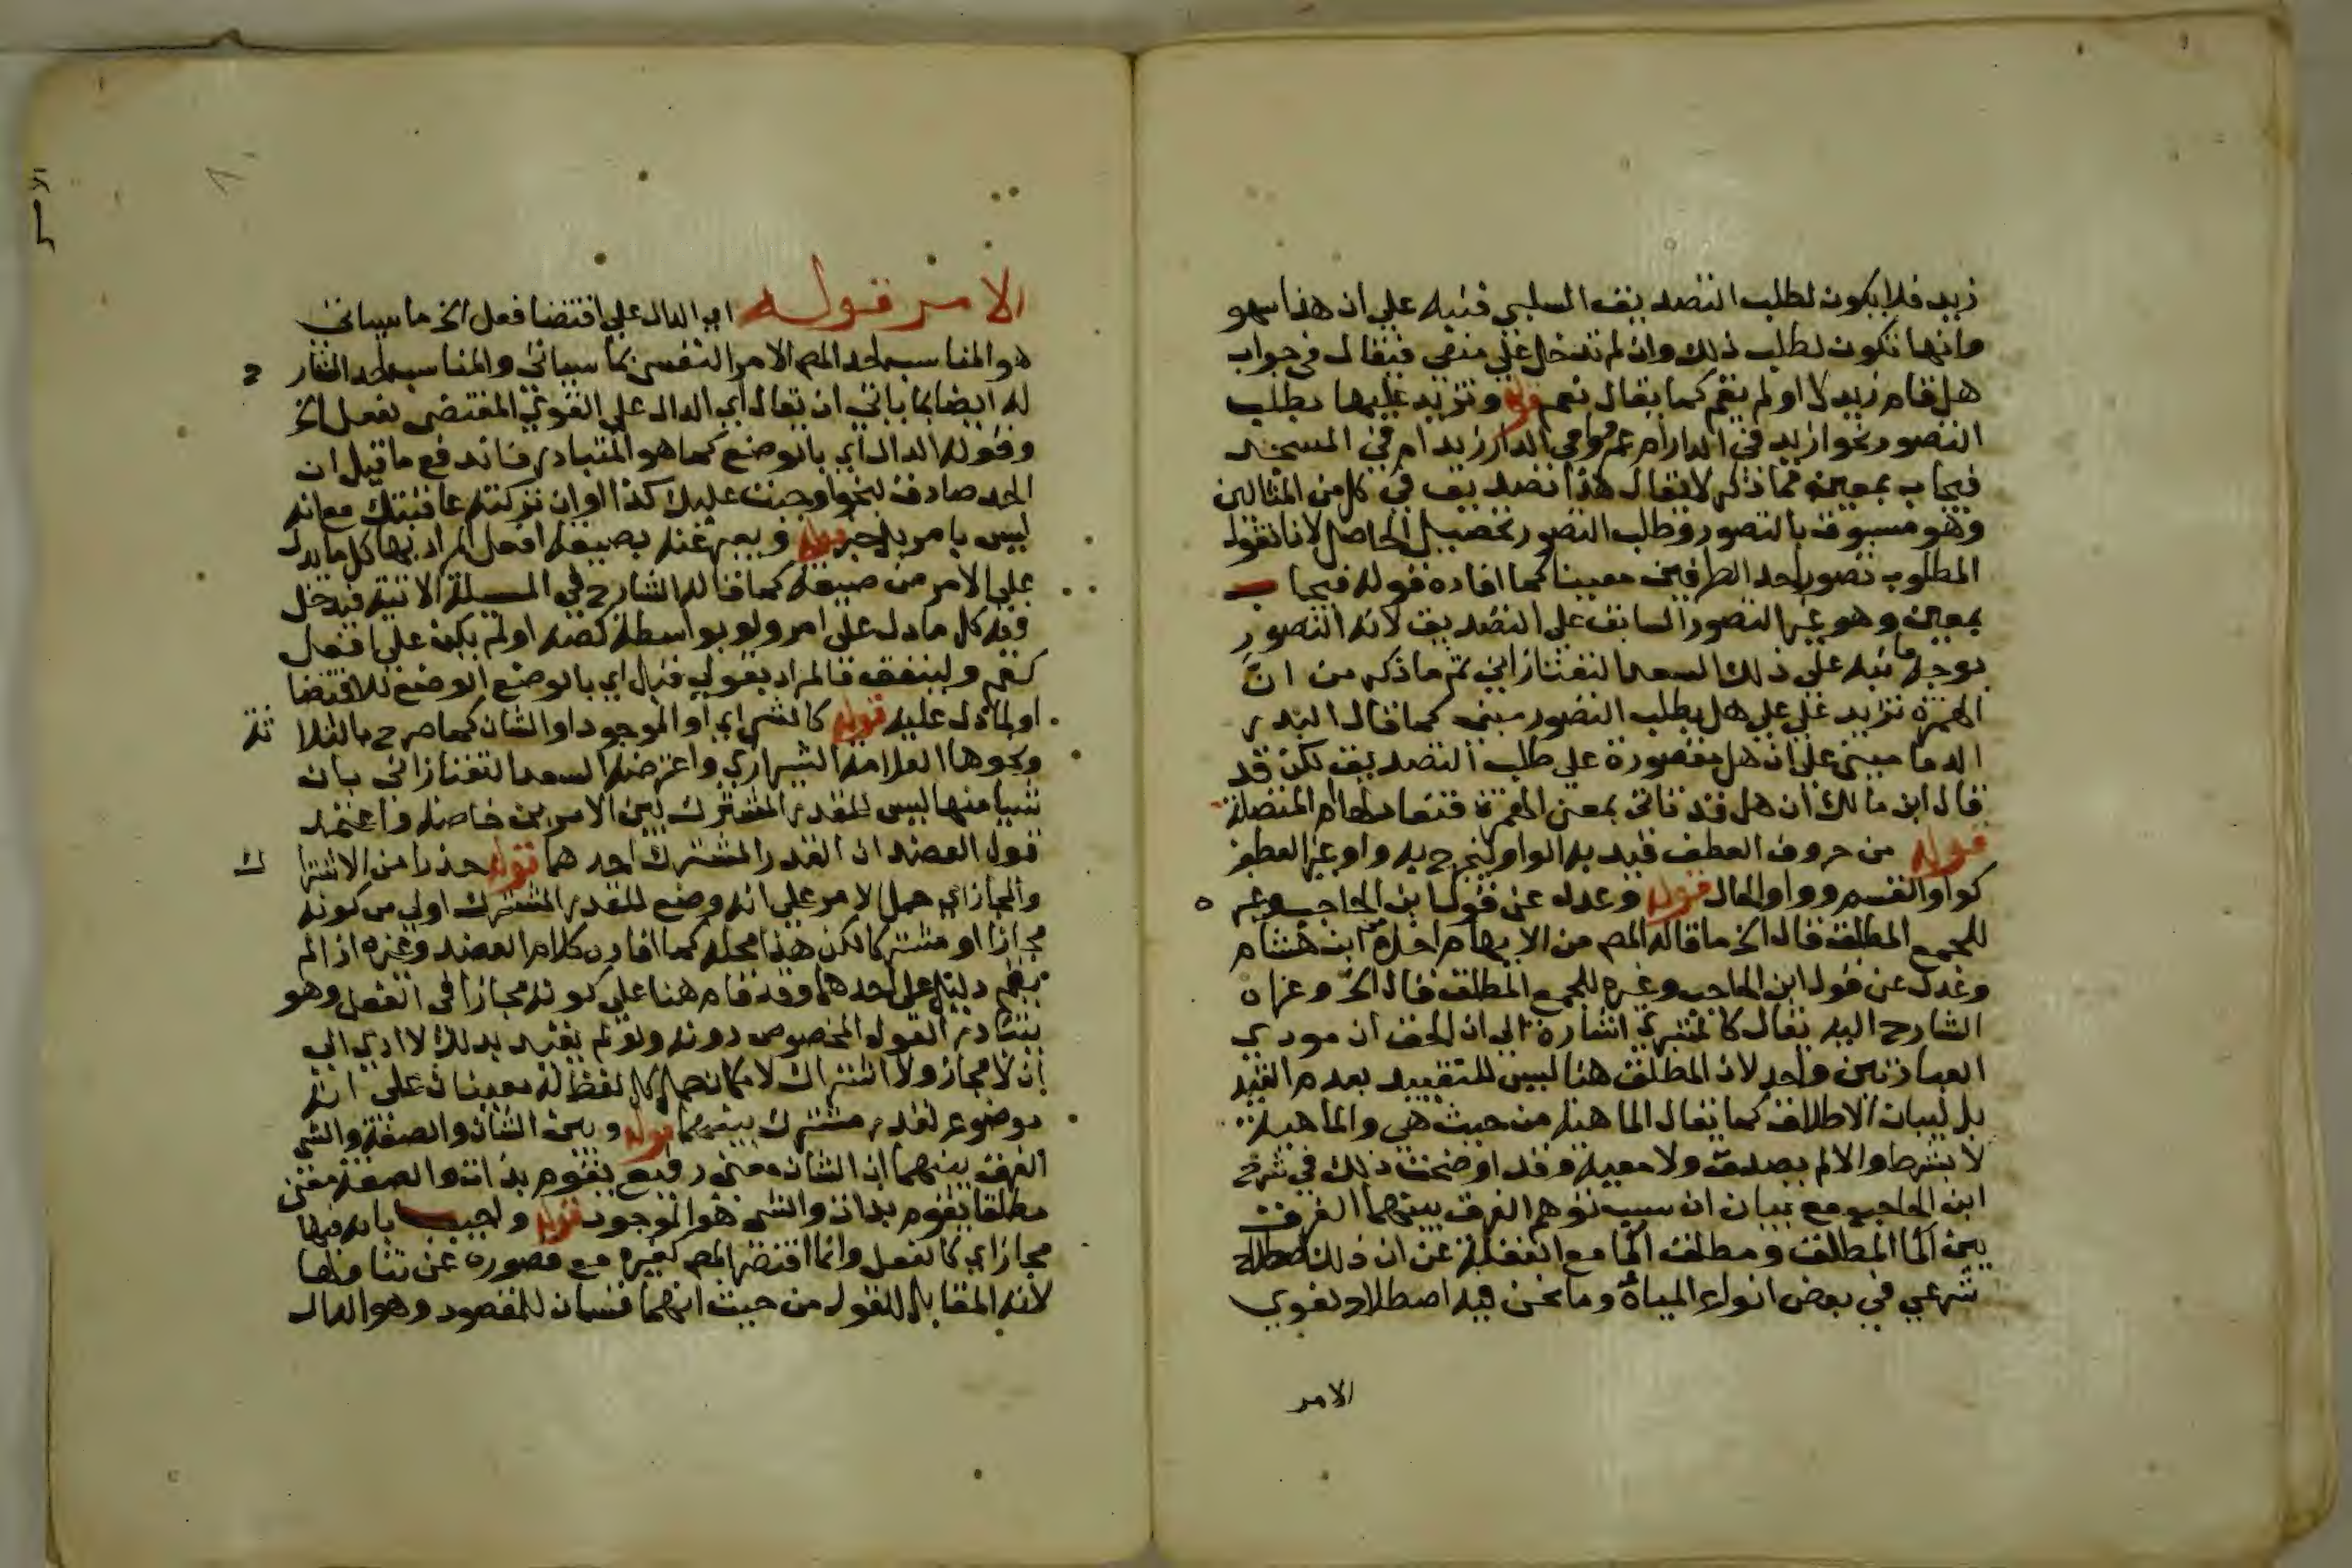 زيد فلا يكون لطلب التصديق السلبي فنبه على ان هذا سهو
وانها تكون لطلب ذلك وان لم تدخل على منفي فيقال في جواب
هل قام زيد لا او لم يقم كما يقال نعم قوله وتزيد عليها بطلب
التصور نحو ازيد في الدار ام عمرو وافي الدار زيد ام في المسجد
فيجاب بمعين مما ذكر لا يقال هذا تصديق في كل من المثالين
وهو مسبوق بالتصور وطلب التصور تحصيل الحاصل لانا نقول
المطلوب تصور احد الطرفين معينا كما افاده قوله فيجاب
بمعين وهو غير التصور السابق على التصديق لانه التصور
بوجه ما نبه على ذلك السعد التفتازاني ثم ما ذكر من ان
الهمزة تزيد على هل بطلب التصور مبني كما قال البدر
الدماميني على ان هل مقصورة على طلب التصديق لكن قد
قال ابن مالك ان هل قد تاتي بمعنى الهمزة فتعادلها ام المتصلة
قوله من حروف العطف قيد به الواو ليخرج به واو غير العطف
كواو القسم وواو الحال قوله وعدل عن قول ابن الحاجب وغيره
للجمع المطلق قال الخ ما قاله المص من الايهام اخذه من ابن هشام
وعدل عن قول ابن الحاجب وغيره للجمع المطلق قال الخ وعزاه
الشارح اليه بقال كالمتبري اشارة الى ان الحق ان مودي
العبارتين واحد لان المطلق هنا ليس للتقييد بعدم القيد
بل لبيان الاطلاق كما يقال الماهية من حيث هي والماهية
لا بشرط والا لم يصدق ولا معية وقد اوضحت ذلك في شرح
ابن الحاجب مع بيان ان سبب توهم الفرق بينهما الفرق
بين الما المطلق ومطلق الما مع الغفلة عن ان ذلك اصطلاح
شرعي في بعض انواع المياه وما نحن فيه اصطلاح لغوي
الامر
الامر قوله اي الدال على اقتضا فعل الخ ما سياتي
هو المناسب لحد المص الامر النفسي بما سياتي والمناسب لحد الشارح
له ايضا بما ياتي ان يقال اي الدال على القول المقتضي لفعل الخ
وقوله الدال اي بالوضع كما هو المتبادر فاندفع ما قيل ان
الحد صادق بنحو اوجبت عليك كذا او ان تركته عاقبتك مع انه
ليس بامر بل خبر قوله ويعبر عنه بصيغة افعل المراد بها كل ما يدل
على الامر من صيغه كما قاله الشارح في المسيلة الاتية فيدخل
فيه كل ما دل على امر ولو بواسطة كصه او لم يكن على افعل
كقم ولينفق فالمراد بقولي قبل اي بالوضع الوضع للاقتضا
او لما دل عليه قوله كالشي اي او الموجود او الشان كما صرح بالثلاثة
ونحوها العلامة الشيرازي واعترضه السعد التفتازاني بان
شيا منها ليس للقدر المشترك بين الامرين خاصة واعتمد
قول العضد ان القدر المشترك احدهما قوله حذرا من الاشتراك
والمجاز اي حمل الامر على انه وضع للقدر المشترك اولى من كونه
مجازا او مشتركا لكن هذا محله كما افاده كلام العضد وغيره اذ الم
يقم دليل على احدهما وقد قام هنا على كونه مجازا في الفعل وهو
تبادر القول المخصوص دونه ولو لم يقيد بذلك لادى الى
ان لا مجاز ولا اشتراك لامكان حمل كل لفظ له معنيان على انه
موضوع لقدر مشترك بينهما قوله وبين الشان والصفة والشي
الفرق بينهما ان الشان معنى رفيع يقوم بذات والصفة معنى
مطلقا يقوم بذات والشي هو الموجود قوله واجيب بانه فيها
مجاز اي كالفعل وانما اقتصر المص كغيره مع قصوره عن تناولها
لانه المقابل للقول من حيث انهما قسمان للمقصود وهو الدال